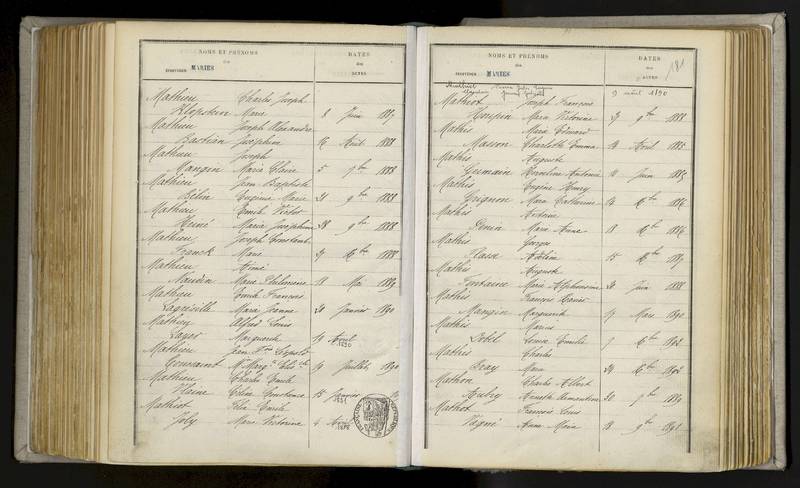 NOMS ET PRÉNOMS
des
MARIÉS
DATES
des
ACTES
Mathieu Charles Joseph
Klopstein Marie 8 Juin 1887
Mathieu Joseph Alexandre
Bastian Joséphine 16 Août 1888
Mathieu Joseph
Mangin Marie Claire 5 7bre 1888
Mathieu Jean Baptiste
Bélin Eugénie Marie 21 9bre 1888
Mathieu Emile Victor
Heiné Marie Joséphine 28 9bre 1888
Mathieu Joseph Constant
Franck Marie 29 Xbre 1888
Mathieu Aimé
Naudin Marie Philomène 18 Mai 1889
Mathieu Emile François
Lagréville Marie Jeanne 20 Janvier 1890
Mathieu Alfred Louis
Layer Marguerite 19 Avril 1890
Mathieu Jean Léopold
Toussaint 19 Juillet 1890
Mathieu Charles Emile
Claire Céline Constance 15 Janvier 1891
Mathiot Emile
Joly Marie Victorine 4 Avril 1888
NOMS ET PRÉNOMS
des
MARIÉS
DATES
des
ACTES
181
9 août 1890
Mathiot Joseph François
Houpin Marie Victorine 29 9bre 1888
Mathis Marie Edouard
Masson Charlotte Emma 18 Avril 1885
Mathis Auguste
Germain Caroline Antonia 10 Juin 1885
Mathis Eugène Henry
Grignon Marie Catherine 16 Xbre 1886
Mathis Antoine
Penin Marie Anne 18 Xbre 1886
Mathis Georges
Adeline 15 Xbre 1887
Mathis Auguste
Fontaine Marie Alphonsine 20 Juin 1888
Mathis François Xavier
Mangin Marguerite 17 Mars 1890
Mathis Marius
Lobel Louise Emilie 9 Xbre 1892
Mathis Charles
Dray Marie 24 Xbre 1892
Mathon Charles Albert
Aubry 20 7bre 1889
Mathot François Louis
Vagné Anne Marie 18 9bre 1891